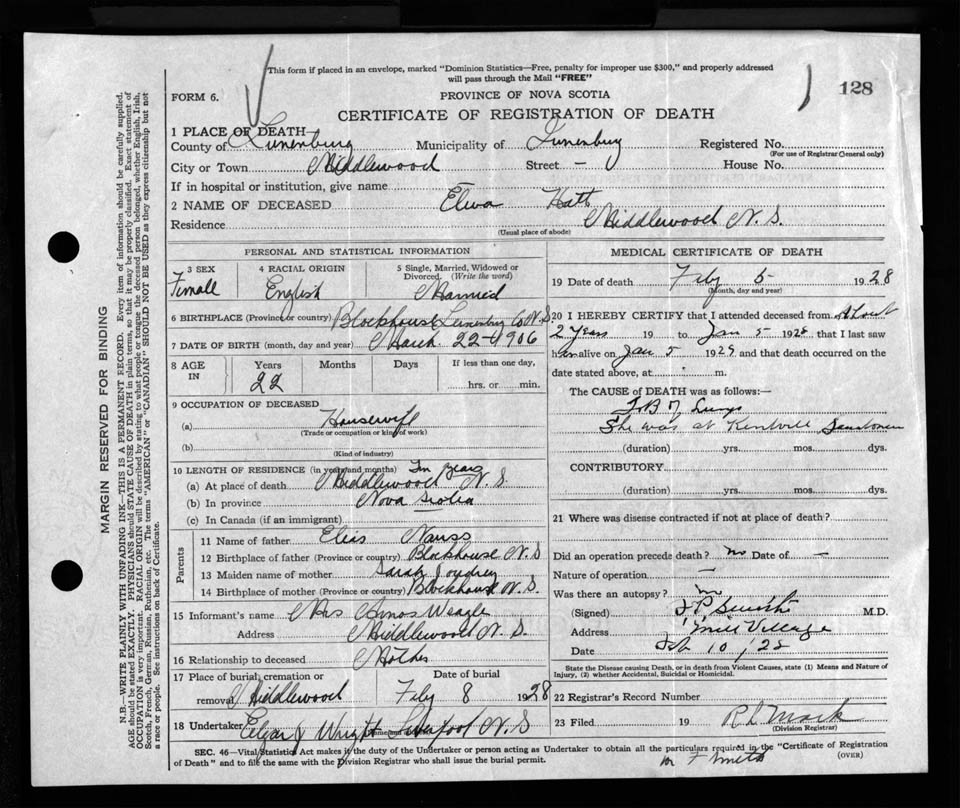 This form if placed in an envelope, marked "Dominion Statistics—Free, penalty for improper use $300," and properly addressed
will pass through the Mail "FREE"
FORM 6.
PROVINCE OF NOVA SCOTIA
128
CERTIFICATE OF REGISTRATION OF DEATH
1 PLACE OF DEATH
County of Lunenburg Municipality of Lunenburg Registered No.
(For use of Registrar General only)
City or Town Middlewood Street — House No.
If in hospital or institution, give name
2 NAME OF DECEASED Elva Hatt
Residence Middlewood N. S.
(Usual place of abode)
PERSONAL AND STATISTICAL INFORMATION
3 SEX
Female
4 RACIAL ORIGIN
English
5 Single, Married, Widowed or
Divorced. (Write the word)
Married
6 BIRTHPLACE (Province or country) Blockhouse Lunenburg Co N.S.
7 DATE OF BIRTH (month, day and year) March 22–1906
8 AGE
IN
Years
22
Months
Days
If less than one day,
hrs. or min.
9 OCCUPATION OF DECEASED
(a) Housewife
(Trade or occupation or kind of work)
(b)
(Kind of industry)
10 LENGTH OF RESIDENCE (in years and months)
(a) At place of death Middlewood N. S.
(b) In province Nova Scotia
(c) In Canada (if an immigrant)
Parents
11 Name of father Elias Nauss
12 Birthplace of father (Province or country) Blockhouse N. S
13 Maiden name of mother Sarah Joudrey
14 Birthplace of mother (Province or country) Blockhouse N. S.
15 Informant's name Mrs Amos Weagle
Address Middlewood N. S.
16 Relationship to deceased Mother
17 Place of burial, cremation or
removal Middlewood
Date of burial
Feby 8 1928
18 Undertaker Elgar J Wright N S
MEDICAL CERTIFICATE OF DEATH
19 Date of death Feby 5 1928
(Month, day and year)
20 I HEREBY CERTIFY that I attended deceased from About
2 Years 19 to Jan 5 1928, that I last saw
her alive on Jan 5 1928 and that death occurred on the
date stated above, at m.
The CAUSE OF DEATH was as follows:
T.B. Lungs
She was at Kentville
(duration) yrs. mos. dys.
CONTRIBUTORY
(duration) yrs. mos. dys.
21 Where was disease contracted if not at place of death?
Did an operation precede death? no Date of —
Nature of operation —
Was there an autopsy? no
(Signed) M.D.
Address Mill Village
Date Feb 10, 28
State the Disease causing Death, or in death from Violent Causes, state (1) Means and Nature of
Injury, (2) whether Accidental, Suicidal or Homicidal.
22 Registrar's Record Number
23 Filed 19
(Division Registrar)
SEC. 46—Vital Statistics Act makes it the duty of the Undertaker or person acting as Undertaker to obtain all the particulars required in the "Certificate of Registration
of Death" and to file the same with the Division Registrar who shall issue the burial permit.
(OVER)
MARGIN RESERVED FOR BINDING
N.B.—WRITE PLAINLY WITH UNFADING INK—THIS IS A PERMANENT RECORD. Every item of information should be carefully supplied.
AGE should be stated EXACTLY. PHYSICIANS should STATE CAUSE OF DEATH in plain terms, so that it may be properly classified. Exact statement of
OCCUPATION is very important. RACIAL ORIGIN will be described by stating to what people or tongue the deceased person belonged, whether English, Irish,
Scotch, French, German, Russian, Ruthenian, etc. The terms "AMERICAN" or "CANADIAN" SHOULD NOT BE USED as they express citizenship but not
a race or people. See instructions on back of Certificate.